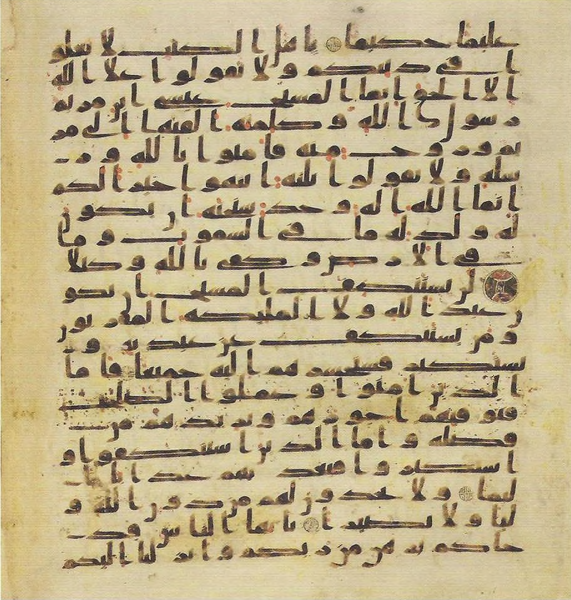 عليما حكيما يا هل الكتب لا تغلو
ا في دينكم ولا تقولوا علا الله
الا الحق انما المسيح عيسى ابن مريم
رسول الله وكلمته القيها الى مر
يم وروح منه فامنوا بالله ور
سله ولا تقولوا ثلثة انتهوا خيرا لكم
انما الله اله وحد سبحنه ان يكون
له ولد له ما في السموت وما
في الارض وكفى بالله وكيلا
لن يستنكف المسيح ان يكو
ن عبدا لله ولا الملئكة المقربون
ومن يستنكف عن عبدته و
يستكبر فسيحشرهم اليه جميعا فاما
الذين امنوا وعملوا الصلحت
فيوفيهم اجورهم ويزيدهم من
فضله واما الذين استنكفوا و
استكبروا فيعذبهم عذابا ا
ليما ولا يجدون لهم من دون الله و
ليا ولا نصيرا يا يها الناس قد
جاكم برهن من ربكم وانزلنا اليكم